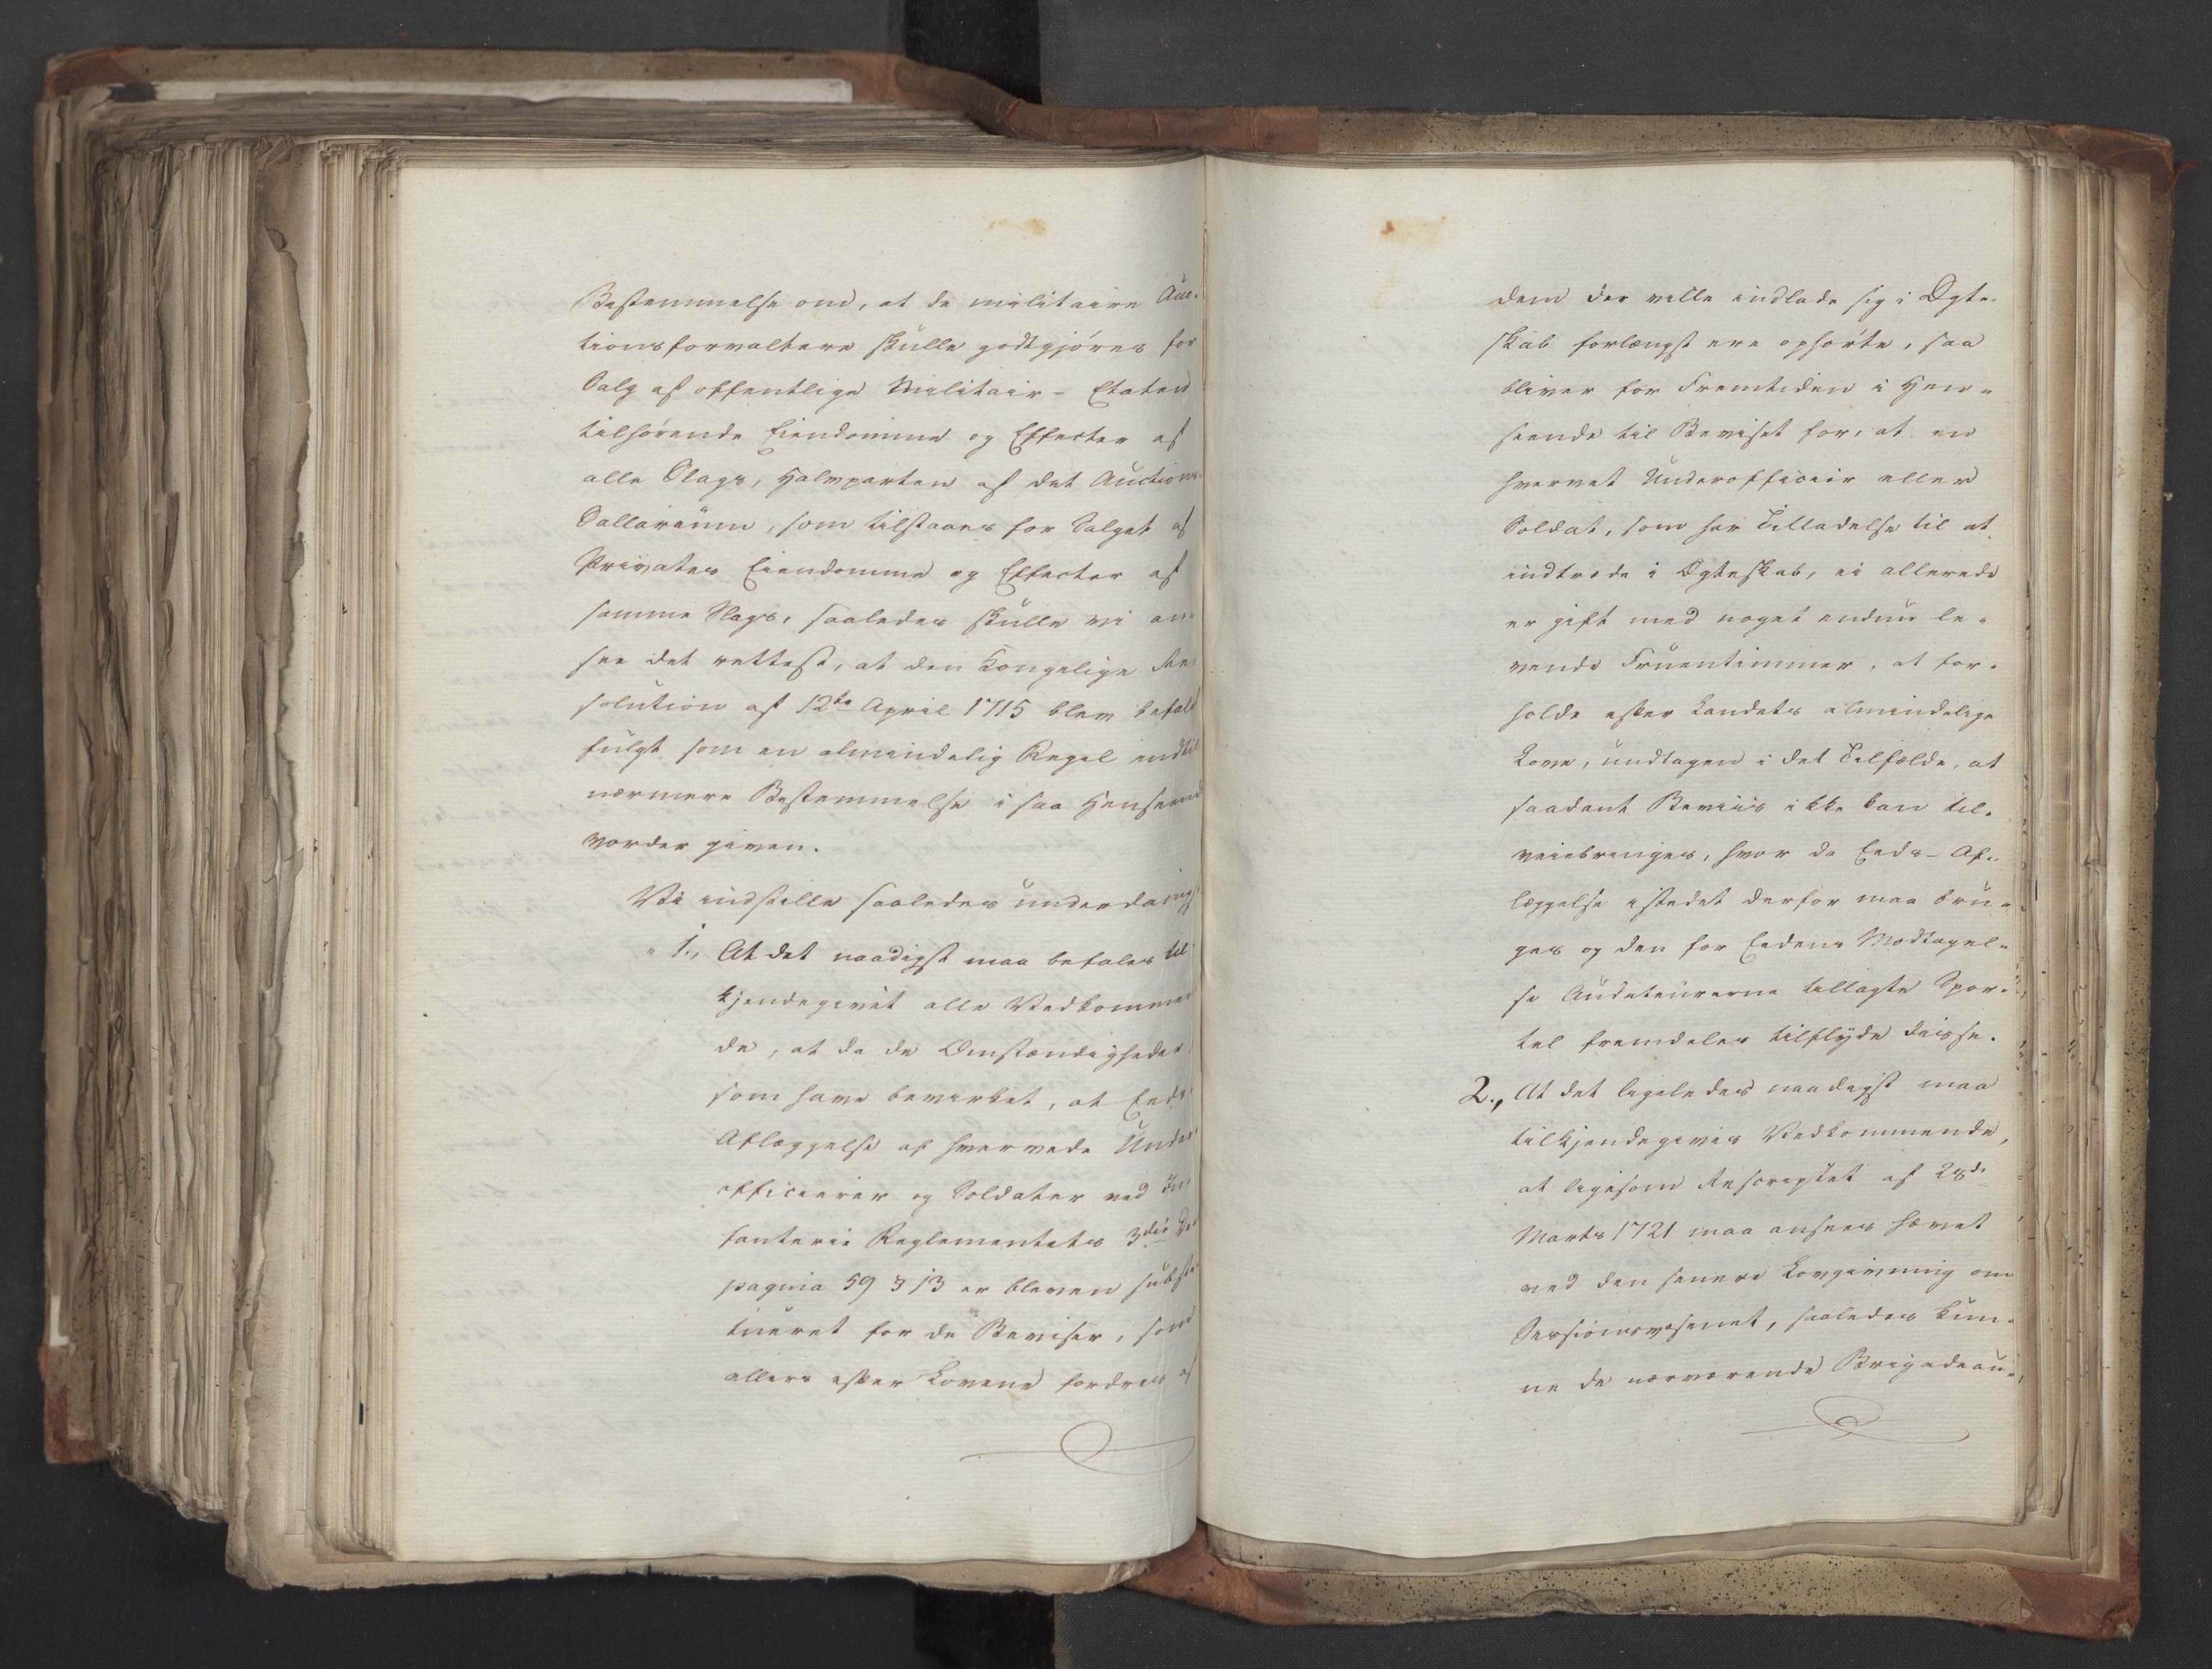 Bestemmelse om, at de militaire Auc-
tionsforvaltere skulle godtgjøres for
Salg af offentlige Militair-Etaten
tilhørende Eiendomme og Effecter af
alle Slags, Halvparten af det Auctions-
Sallarium, som tilstaaes for Salget af
Privates Eiendomme og Effecter af
samme Slags, saaledes skulle vi an-
see det rettest, at den Kongelige Re-
solution af 12te April 1715 blev befalet
fulgt som en almindelig Regel indtil
nærmere Bestemmelse i saa Henseende
vorder given.
Vi indstille saaledes underdanigst
1., At det naadigst maa befales til-
kjendegivet alle Vedkommen-
de, at da de Omstændigheder
som have bevirket, at Eeds-
Aflæggelse af hvervede Under-
officierer og Soldater ved In-
fanterie Reglementets 3die
pagina 59 § 13 er bleven substi-
tueret for de Beviser, som
ellers efter Lovene fordres af
dem der ville indlade sig i Ægte-
skab forlængst ere ophørte, saa
bliver for Fremtiden i Hen-
seende til Beviset for, at en
hvervet Underofficier eller
Soldat, som har Tilladelse til at
indtræde i Ægteskab, ei allerede
er gift med noget endnu le-
vende Fruentimmer, at for-
holde efter Landets almindelige
Love, undtagen i det Tilfælde, at
saadant Beviis ikke kan til-
veiebringes, hvor da Eeds-Af-
læggelse istedet derfor maa bru-
ges og den for Eedens Modtagel-
se Auditeurerne tillagte Spor-
tel fremdeles tilflyde disse.
2., At det ligeledes naadigst maa
tilkjendegives Vedkommende,
at ligesom Rescriptet af 28de
Marts 1721 maa ansees hævet
ved den senere Lovgivning om
Sessionsvæsenet, saaledes kun-
ne de nærværende Brigadeau-